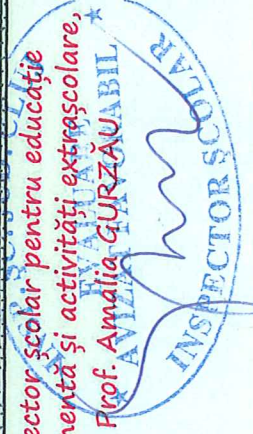 ector școlar pentru educație
mentă și activități extrașcolare,
Prof. Amalia GURZĂU
EVALUARE
AVIZAT FAVORABIL
INSPECTOR ȘCOLAR